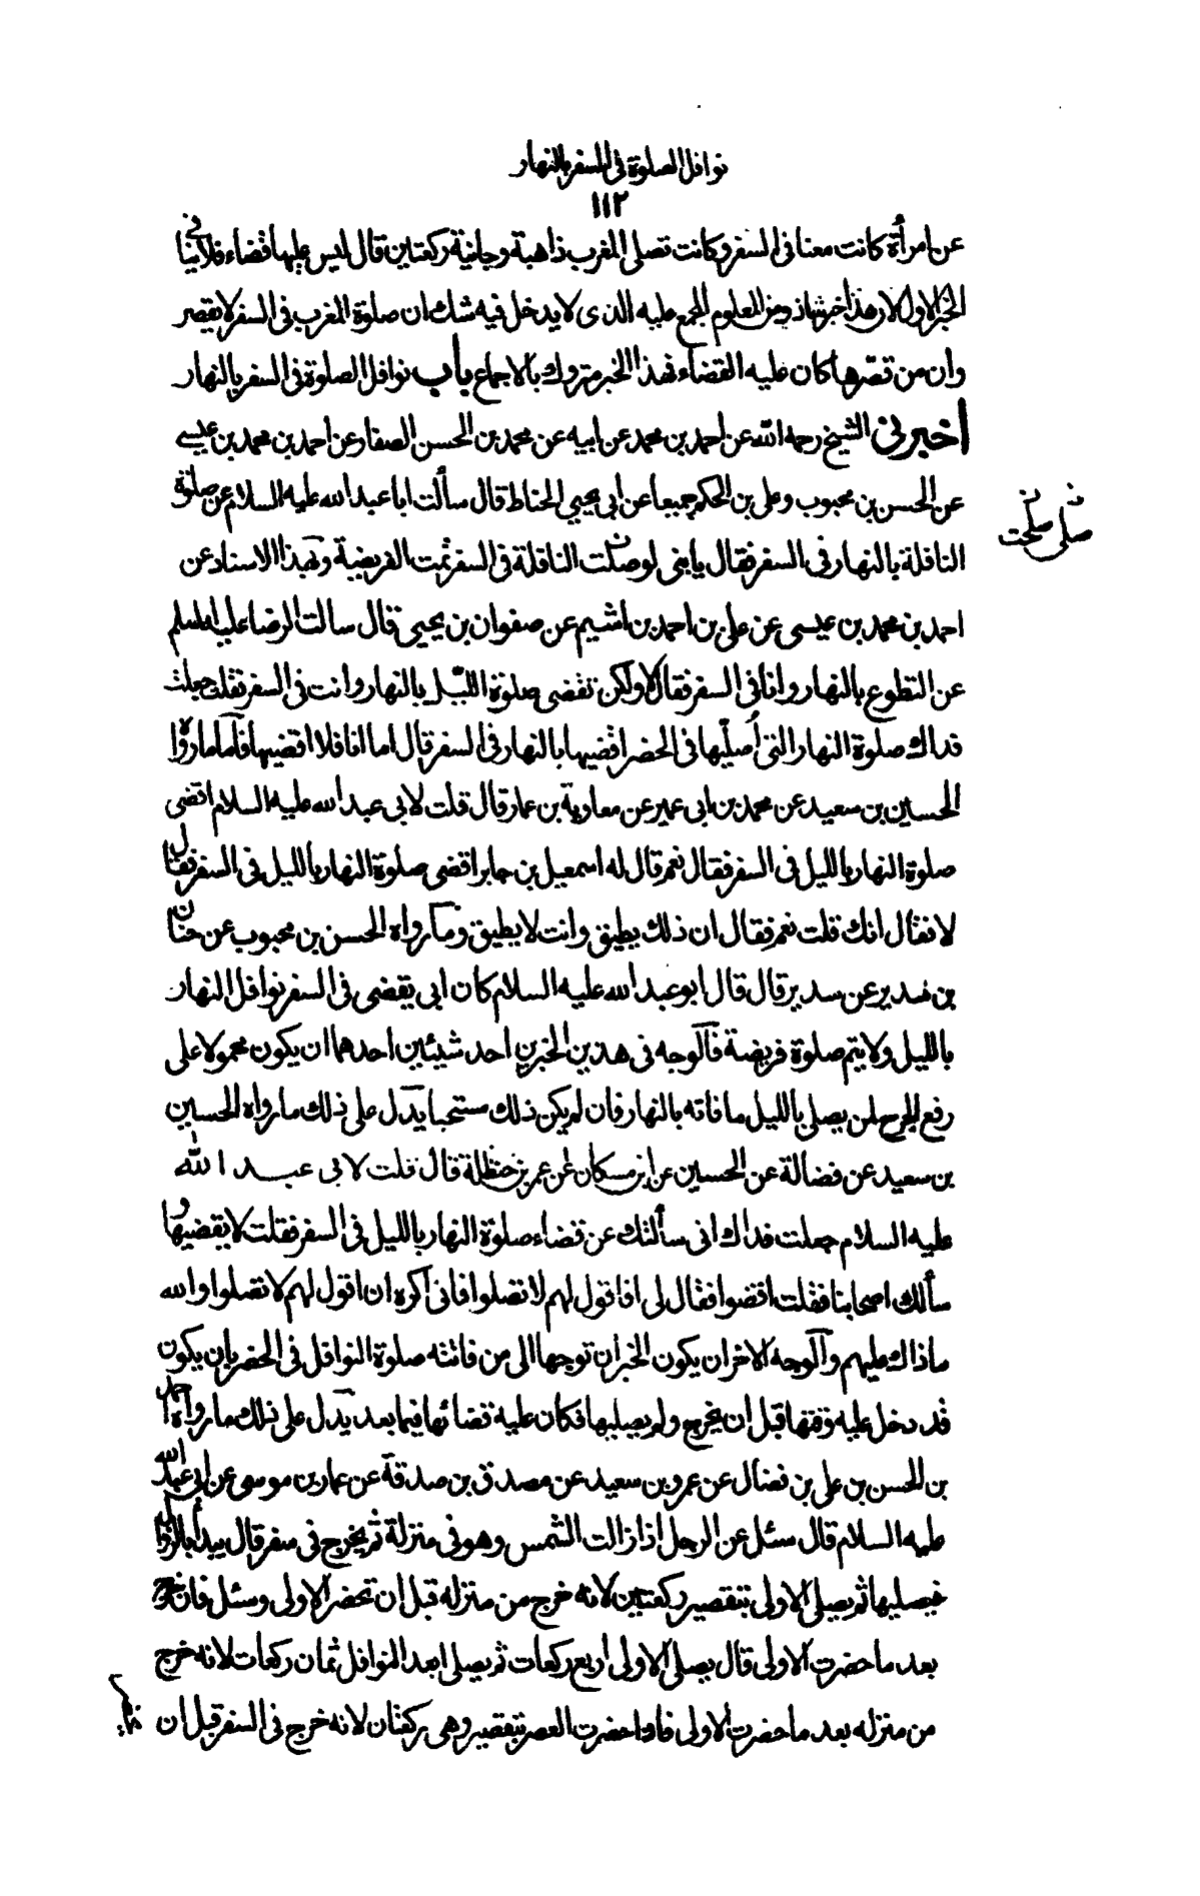 نوافل الصلوة فى السفر بالنهار
١١٢
عن امرأة كانت معنا فى السفر وكانت تصلى المغرب ذاهبة وجائية ركعتين قال ليس عليها قضاء فلاينا فى
الخبر الاول لان هذا خبر شاذ ومن المعلوم المجمع عليه الذى لا يدخل فيه شك ان صلوة المغرب فى السفر لا يقصر
وان من قصّرها كان عليه القضاء فهذا الخبر متروك بالاجماع باب نوافل الصلوة فى السفر بالنهار
اخبرنى الشيخ رحمه الله عن احمد بن محمد عن ابيه عن محمد بن الحسن الصفار عن احمد بن محمد بن عيسى
عن الحسن بن محبوب وعلى بن الحكم جميعا عن ابى يحيى الحناط قال سألت ابا عبد الله عليه السلام عن صلوة
صلى ن صلحت ن
النافلة بالنهار فى السفر فقال يا بنى لو صلت النافلة فى السفر تمت الفريضة وبهذا الاسناد عن
احمد بن محمد بن عيسى عن على بن احمد بن اشيم عن صفوان بن يحيى قال سالت الرضا عليه السلم
عن التطوع بالنهار وانا فى السفر فقال لا ولكن تقضى صلوة الليل بالنهار وانت فى السفر فقلت جعلت
فداك صلوة النهار التى أصلّيها فى الحضر اقضيها بالنهار فى السفر قال اما انا فلا اقضيها فاما ما رواه
الحسين بن سعيد عن محمد بن ابى عمير عن معاوية بن عمار قال قلت لابى عبد الله عليه السلام اقضى
صلوة النهار بالليل فى السفر فقال نعم قال له اسمعيل بن جابر اقضى صلوة النهار بالليل فى السفر فقال
لا فقال انك قلت نعم فقال ان ذلك يطيق وانت لا يطيق وما رواه الحسن بن محبوب عن حنان
بن سدير عن سدير قال قال ابو عبد الله عليه السلام كان ابى يقضى فى السفر نوافل النهار
بالليل ولا يتم صلوة فريضة فالوجه فى هذين الخبرين احد شيئين احدهما ان يكون محمولا على
رفع الحرج لمن يصلى بالليل ما فاته بالنهار فان لم يكن ذلك مستحبا يدل على ذلك ما رواه الحسين
بن سعيد عن فضالة عن الحسين عن ابن مسكان عن عمر بن حنظلة قال قلت لابى عبد الله
عليه السلام جعلت فداك انى سألتك عن قضاء صلوة النهار بالليل فى السفر فقلت لا يقضيها و
سألك اصحابنا فقلت اقضوا فقال لى افاقول لهم لا تصلوا فانى اكره ان اقول لهم لا تصلوا والله
ما ذاك عليهم والوجه الاخر ان يكون الخبران توجها الى من فاتته صلوة النوافل فى الحضر بان يكون
قد دخل عليه وقتها قبل ان يخرج ولم يصليها فكان عليه قضائها فيما بعد يدل على ذلك ما رواه احمد
بن الحسن بن على بن فضال عن عمرو بن سعيد عن مصدق بن صدقة عن عمار بن موسى عن ابى عبد الله
عليه السلام قال سئل عن الرجل اذا زالت الشمس وهو فى منزلة ثم يخرج فى سفر قال يبدأ بالزوال
فيصليها ثم يصلى الاولى بتقصير ركعتين لانه خرج من منزله قبل ان تحضر الاولى وسئل فان خرج
بعد ما حضرت الاولى قال يصلى الاولى اربع ركعات ثم يصلى بعد النوافل ثمان ركعات لانه خرج
من منزله بعد ما حضرت الاولى فاذا حضرت العصر بتقصير وهى ركعتان لانه خرج فى السفر قبل ان